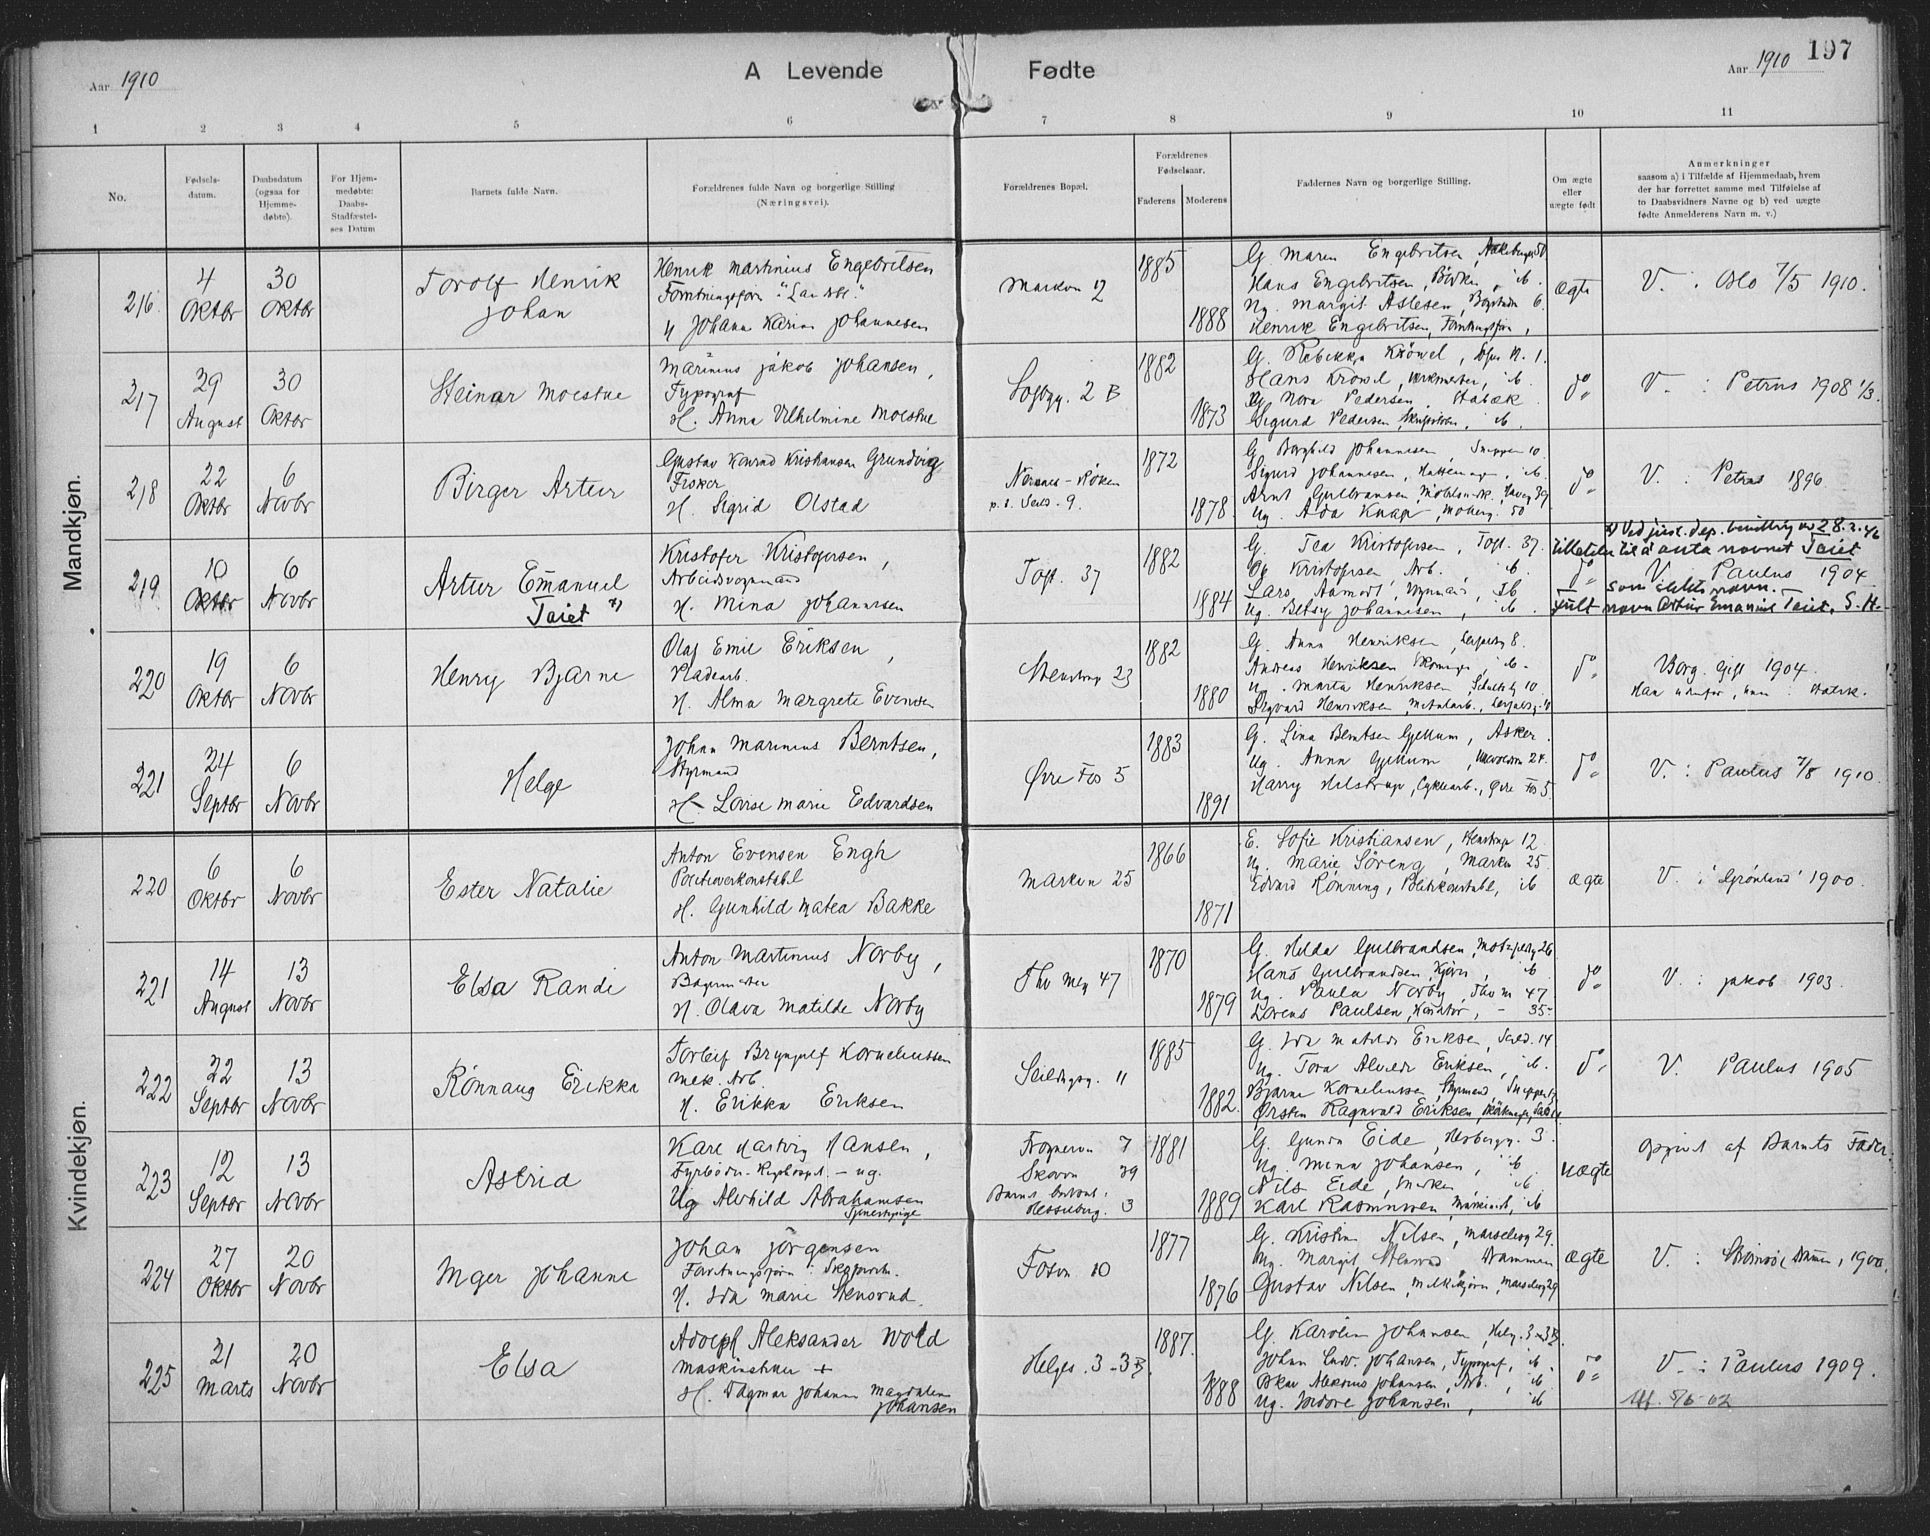 Aar 1910
A Levende Fødte
Aar 1910
197
1 2 3 4 5 6 7 8 9 10 11
No.
Fødsels-
datum.
Daabsdatum
(ogsaa for
Hjemme-
døbte).
For Hjem-
medøbte:
Daabs-
Stadfæstel-
ses Datum
Barnets fulde Navn.
Forældrenes fulde Navn og borgerlige Stilling
(Næringsvei).
Forældrenes Bopæl.
Forældrenes
Fødselsaar.
Faderens Moderens
Faddernes Navn og borgerlige Stilling.
Om ægte
eller
uægte født
Anmerkninger
saasom a) i Tilfælde af Hjemmedaab, hvem
der har forrettet samme med Tilføielse af
to Daabsvidners Navne og b) ved uægte
fødte Anmelderens Navn m. v.)
Mandkjøn.
216
4
Oktbr
30
Oktbr
Torolf Henrik
Johan
Henrik Martinius Engebritsen
H Johanna Karine Johannesen
Markvn 12
1885
1888
G. Maren Engebritsen, Akebergv 50
Hans Engebritsen, ib.
Ug. Margit Aslesen, 6.
Henrik Engebritsen,
ægte
V. Oslo 7/5 1910.
217
29
August
30
Oktbr
Steinar Moestue
Marinius Jakob Johansen,
Typograf
H. Anna Vilhelmine Moestue
Sofbgg. 2 B
1882
1873
G. Rebekka Krowel, 1.
Hans Krowel, ib.
Ug Nora Pedersen, Stabæk
Sigurd Pedersen, ib.
do
V. : Petrus 1908 1/3.
218
22
Oktbr
6
Novbr
Birger Artur
Gustav Konrad Kristiansen Grundvig
Fisker
H. Sigrid Olstad
Nærsnes - Røken
p. t. Seild. 9.
1872
1878
G. Borghild Johannesen, Snippen 10.
Sigurd Johannesen, ib.
Arnt Gulbransen,
Ug. Ada Knap, 50
do
V. : Petrus 1896
219
10
Oktbr
6
Novbr
Artur Emanuel
Taiet x)
Kristofer Kristofersen,
Arbeidsvognmand
H. Mina Johannesen
Toft. 37
1882
1884
G. Tea Kristofersen, Toft. 37.
Kristofersen Arb. ib.
Lars Aamodt,
Ug. Betsy Johannesen, ib.
do
x) Ved just. dep. bevilling av 28.2.46
tillatelse til å anta navnet Taiet
V. Paulus 1904
som slektsnavn.
Fullt navn Artur Emanuel Taiet. S.H.
220
19
Oktbr
6
Novbr
Henry Bjarne
Olaf Emil Eriksen,
Pladearb.
H. Alma Margrete Evensen
Stenstrup 23
1882
1880
G. Anna Henriksen, 8.
Andreas Henriksen ib.
Ug. Marta Henriksen, 10
Sigvard Henriksen, Metalarb.,
do
Borg. Gift 1904.
221
24
Septbr
6
Novbr
Helge
Johan Marinius Berntsen,
Styrmand
H. Lovise Marie Edvardsen
Øvre Fos 5
1883
1891
G. Lina Berntsen Gjellum, Asker.
Ug. Anna Gjellum, 24.
Harry Hilstrup, Cyklearb., Øvre Fos 5.
do
V. : Paulus 7/8 1910
Kvindekjøn.
220
6
Oktbr
6
Novbr
Ester Natalie
Anton Evensen Engh
Politioverkonstabl
H. Gunhild Matea Bakke
Markvn 25
1866
1871
E. Sofie Kristiansen, Stenstrup 12
Ug. Marie Søreng, Markv 25
Edvard Rønning, Politikonstabl, ib
ægte
V. i Grønland 1900.
221
14
August
13
Novbr
Elsa Randi
Anton Martinius Norby,
Bagermester
H. Olava Matilde Norby
Thv Meg 47
1870
1879
G. Hilda Gulbrandsen, 26
Hans Gulbrandsen, ib
Ug. Paula Norby, Thv M 47.
Lorens Paulsen, Kontor, - 35-
do
V. : Jakob 1903.
222
22
Septbr
13
Novbr
Rønnaug Erikka
Torleif Brynjulf Korneliussen
Mek. Arb.
H. Erikka Eriksen
Seildugsg. 11
1885
1882.
G. Ida Matilde Eriksen, Seild. 14
Ug. Tora Alvilde Eriksen, ib.
Bjarne Korneliussen, Styrmand,
Ørsten Ragnvald Eriksen,
do
V. Paulus 1905
223
12
Septbr
13
Novbr
Astrid
Karl Hartvig Hansen,
Fyrbøder - ug.
Ug Alvhild Abrahamsen
Tjenestepige
Frognervn 7
Skovvn 39
Hesselberg. 3
1881
1889
G. Gunda Eide, Hesbergg. 3.
Ug. Mina Johansen, ib
Nils Eide, ib.
Karl Rasmussen, ib
uægte
Opgivet af Barnets Fader.
224
27
Oktbr
20
Novbr
Inger Johanne
Johan Jörgensen
H. Ida Marie Stensrud
Fosvn 10
1877
1876
G. Kristine Nilsen, Marselisg 29.
Ug. Margit Stensrud Drammen
Gustav Nilsen, Marselisg 29
ægte
V. : Strömsö, Dramn, 1900.
225
21
Marts
20
Novbr
Elsa
Adolf Aleksander Wold
H. Dagmar Johanne Magdalene
Johansen
Helges. 3 - 3 B.
1887.
1888
G. Karoline Johansen, Helg. 3-3 B.
Johan Ludv. Johansen, Typograf, ib.
Oskar Aleksius Johansen, Arb., ib
Ug. Isidore Johansen, ib
do
V. : Paulus 1909.